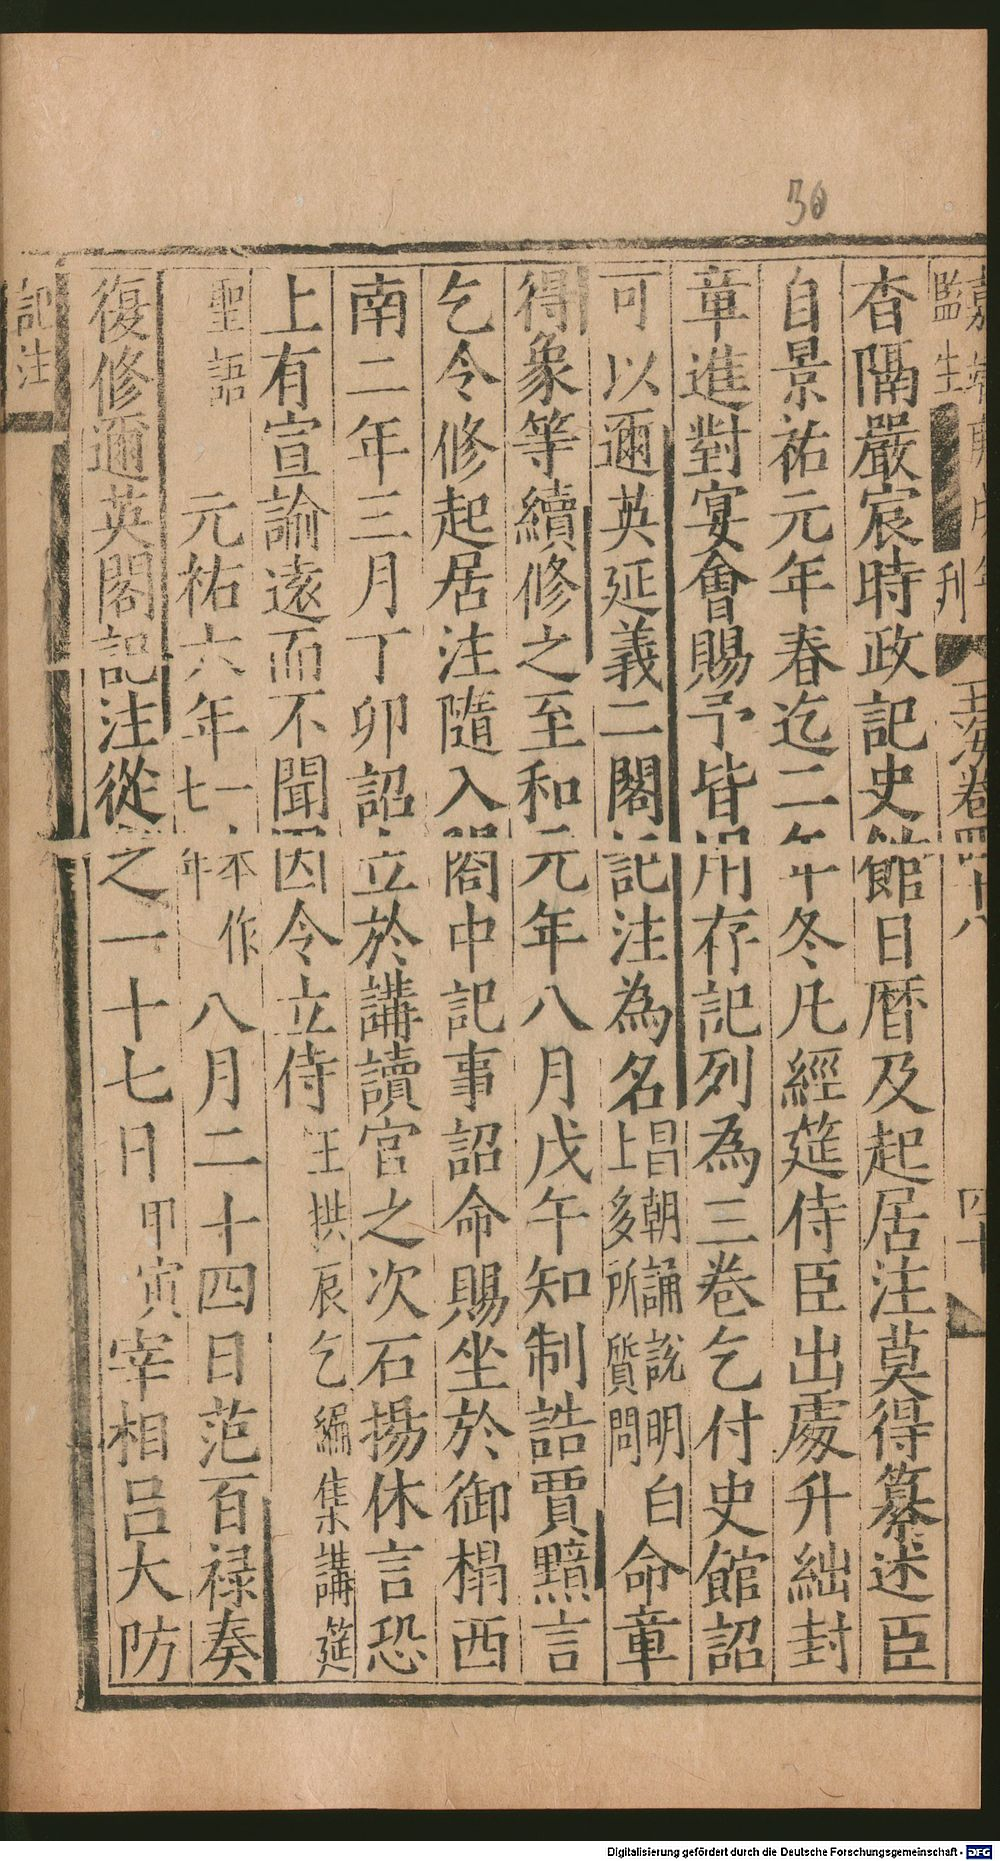 30
監生
刊
玉海卷四十八
四十
杳隔嚴宸時政記史館日曆及起居注莫得纂述臣
自景祐元年春迄二年冬凡經筵侍臣出處升絀封
章進對宴會賜予皆用存記列為三卷乞付史館詔
可以邇英延義二閣記注為名昌朝誦說明白上多所質問命章
得象等續修之至和元年八月戊午知制誥賈黯言
乞令修起居注隨入閤中記事詔命賜坐於御榻西
南二年三月丁卯詔立於講讀官之次石揚休言恐
上有宣諭遠而不聞因令立侍王拱辰乞編集講筵
聖語元祐六年一本作七年八月二十四日范百祿奏
復修邇英閣記注從之一十七日甲寅宰相呂大防
記注
Digitalisierung gefördert durch die Deutsche Forschungsgemeinschaft - DFG